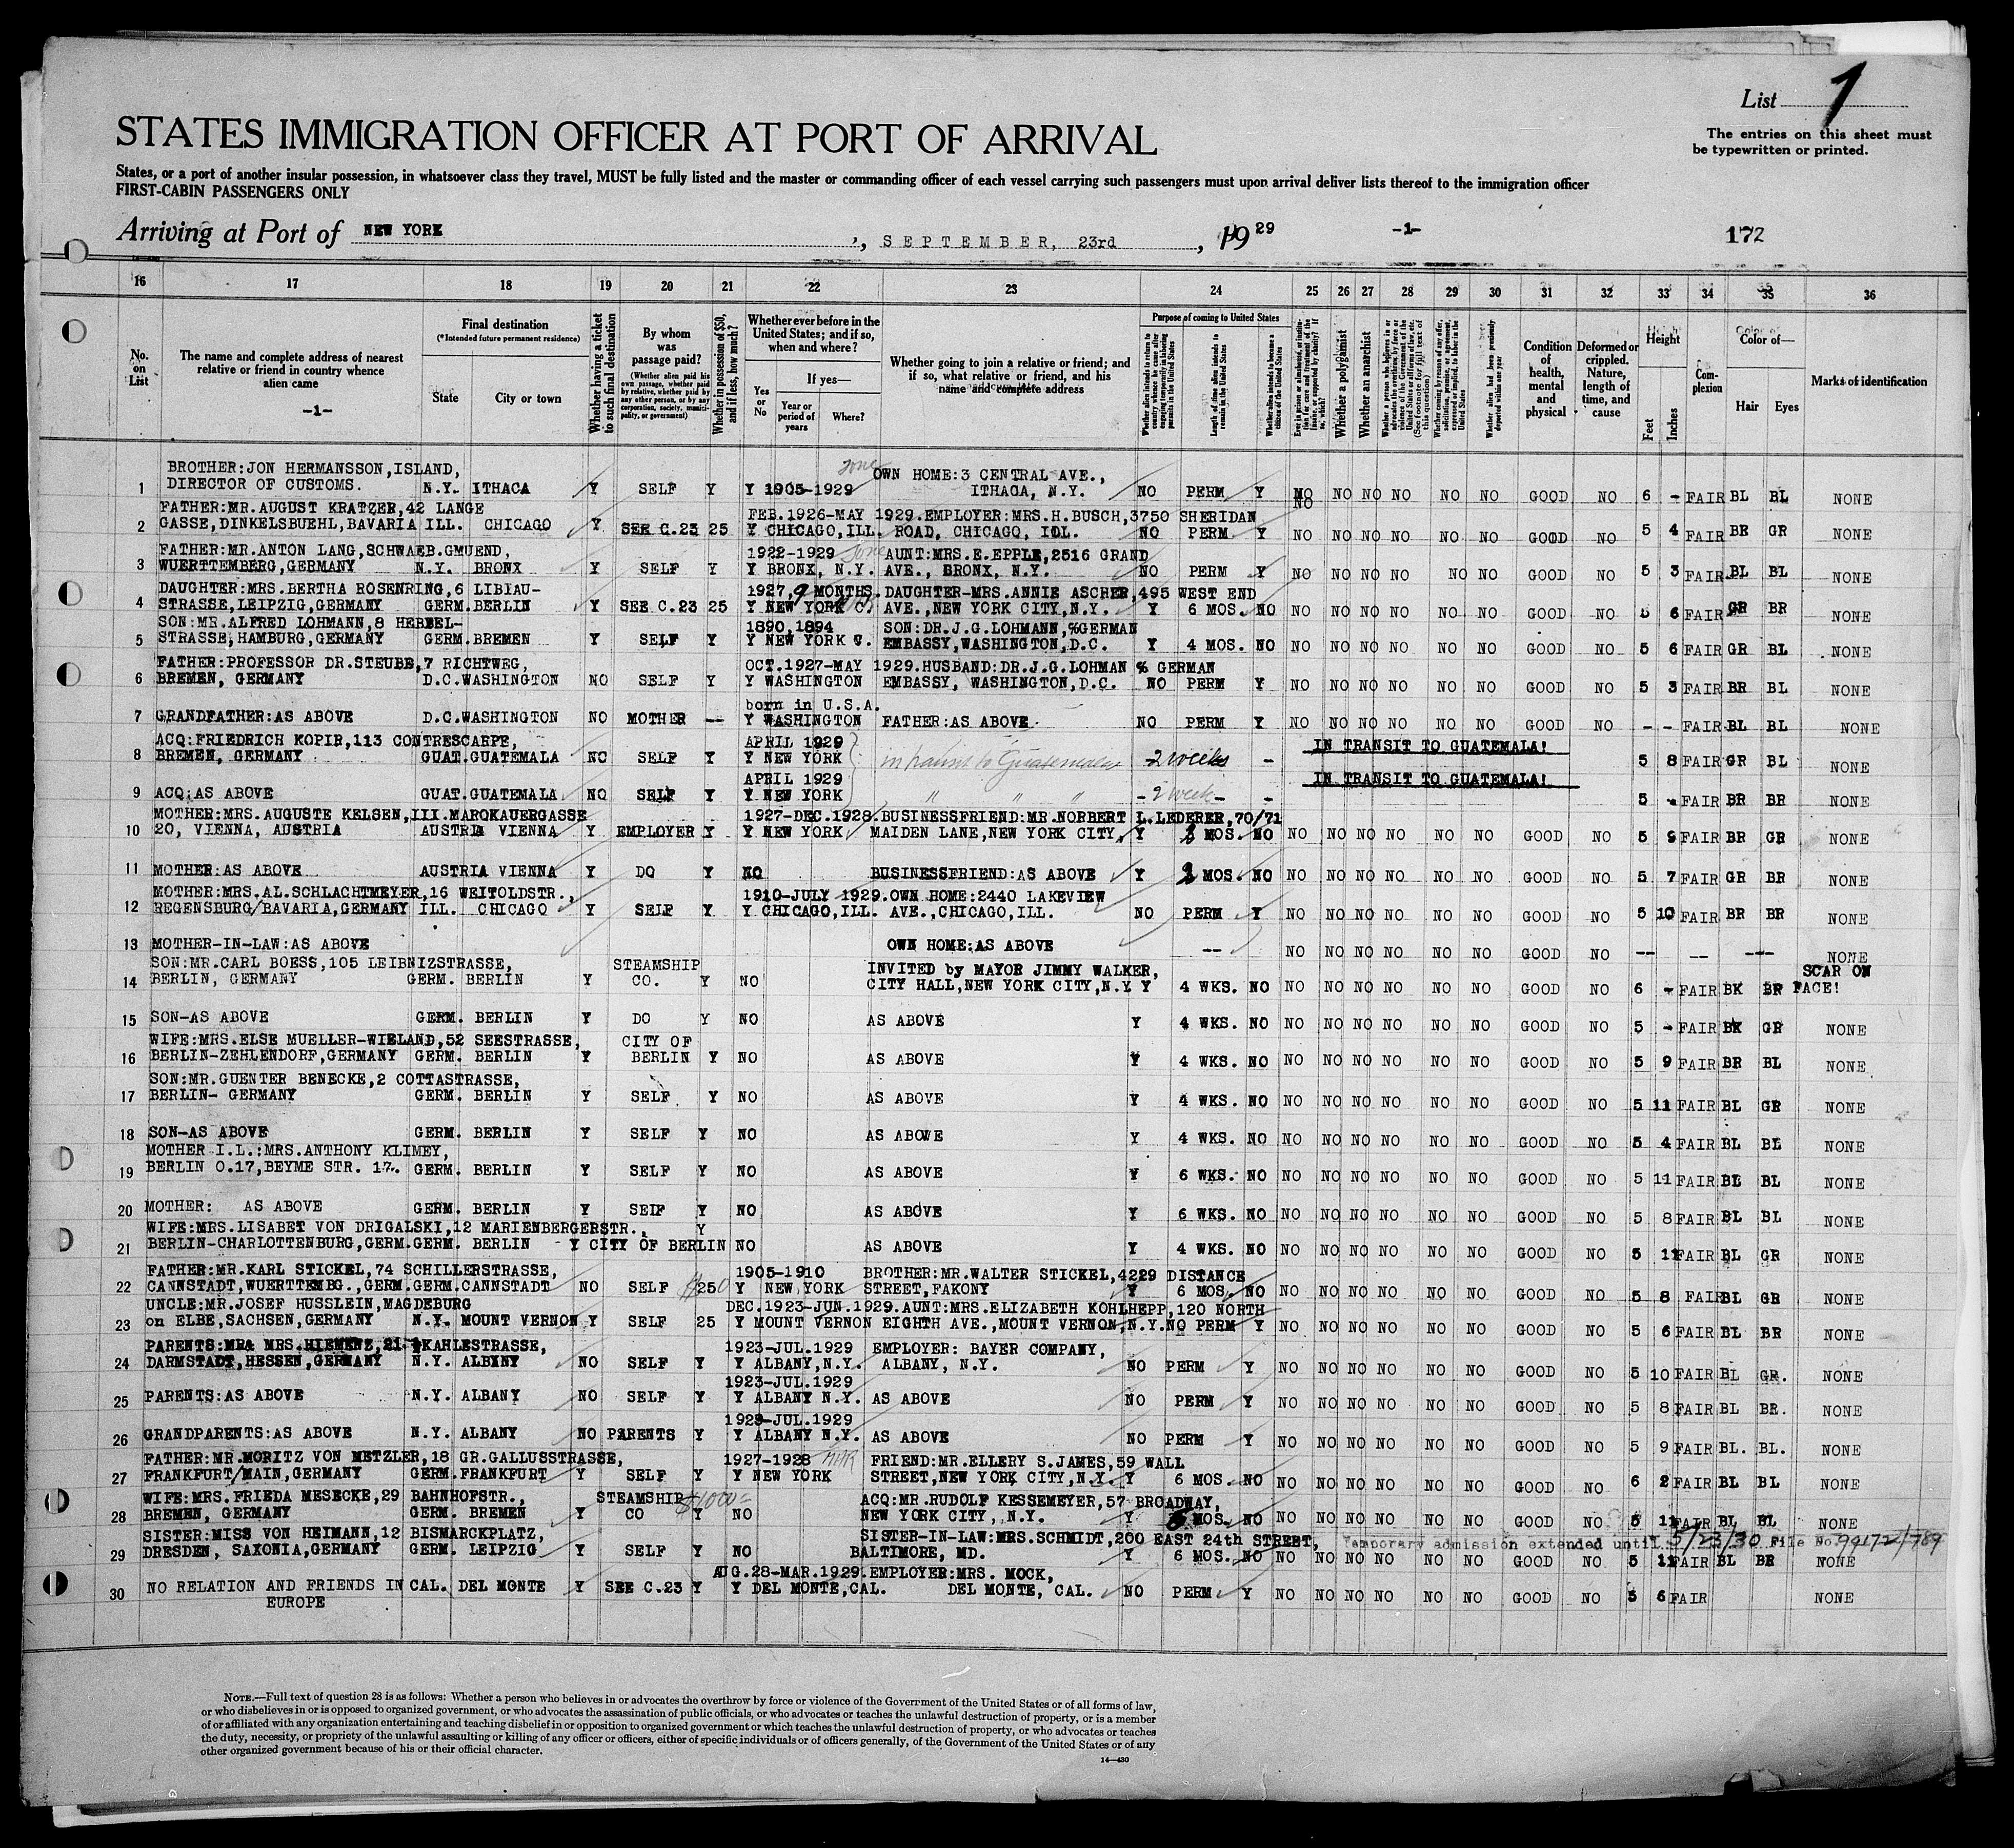 List 1
STATES IMMIGRATION OFFICER AT PORT OF ARRIVAL
The entries on this sheet must
be typewritten or printed.
States, or a port of another insular possession, in whatsoever class they travel, MUST be fully listed and the master or commanding officer of each vessel carrying such passengers must upon arrival deliver lists thereof to the immigration officer
FIRST-CABIN PASSENGERS ONLY
Arriving at Port of NEW YORK, SEPTEMBER, 23rd, 1929 -1- 172
16 17 18 19 20 21 22 23 24 25 26 27 28 29 30 31 32 33 34 35 36
No. on List
The name and complete address of nearest relative or friend in country whence alien came
-1-
Final destination
(*Intended future permanent residence)
State
City or town
Whether having a ticket to such final destination
By whom was passage paid?
(Whether alien paid his own passage, whether paid by relative, whether paid by any other person, or by any corporation, society, municipality, or government)
Whether in possession of $50, and if less, how much?
Whether ever before in the United States; and if so, when and where?
Yes or No
If yes—
Year or period of years
Where?
Whether going to join a relative or friend; and if so, what relative or friend, and his name and complete address
Purpose of coming to United States
Whether alien intends to return to country whence he came after engaging temporarily in laboring pursuits in the United States
Length of time alien intends to remain in the United States
Whether alien intends to become a citizen of the United States
Whether a polygamist
Whether an anarchist
Condition of health, mental and physical
Deformed or crippled. Nature, length of time, and cause
Height
Feet
Inches
Complexion
Color of—
Hair
Eyes
Marks of identification
BROTHER:JON HERMANSSON,ISLAND,
1 DIRECTOR OF CUSTOMS. N.Y. ITHACA Y SELF Y Y 1905-1929 OWN HOME:3 CENTRAL AVE., ITHACA, N.Y. NO PERM Y NO NO NO NO NO NO GOOD NO 6 - FAIR BL BL NONE
FATHER:MR.AUGUST KRATZER,42 LANGE FEB.1926-MAY 1929.EMPLOYER:MRS.H.BUSCH,3750 SHERIDAN
2 GASSE,DINKELSBUEHL,BAVARIA ILL. CHICAGO Y SEE C.23 25 Y CHICAGO,ILL. ROAD, CHICAGO, ILL. NO PERM Y NO NO NO NO NO NO GOOD NO 5 4 FAIR BR GR NONE
FATHER:MR.ANTON LANG,SCHWAEB.GMUEND, 1922-1929 AUNT:MRS.E.EPPLE,2516 GRAND
3 WUERTTEMBERG,GERMANY N.Y. BRONX Y SELF Y Y BRONX, N.Y. AVE., BRONX, N.Y. NO PERM Y NO NO NO NO NO NO GOOD NO 5 3 FAIR BL BL NONE
DAUGHTER:MRS.BERTHA ROSENRING,6 LIBIAU- 1927,9 MONTHS.DAUGHTER-MRS.ANNIE ASCHER,495 WEST END
4 STRASSE,LEIPZIG,GERMANY GERM.BERLIN Y SEE C.23 25 Y NEW YORK C. AVE.,NEW YORK CITY,N.Y. Y 6 MOS. NO NO NO NO NO NO NO GOOD NO 5 6 FAIR GR BR NONE
SON:MR.ALFRED LOHMANN,8 HEBBEL- 1890,1894 SON:DR.J.G.LOHMANN,%GERMAN
5 STRASSE,HAMBURG,GERMANY GERM.BREMEN Y SELF Y Y NEW YORK C. EMBASSY,WASHINGTON,D.C. Y 4 MOS. NO NO NO NO NO NO NO GOOD NO 5 6 FAIR GR BL NONE
FATHER:PROFESSOR DR.STEUBE,7 RICHTWEG, OCT.1927-MAY 1929.HUSBAND:DR.J.G.LOHMAN % GERMAN
6 BREMEN, GERMANY D.C.WASHINGTON NO SELF Y Y WASHINGTON EMBASSY, WASHINGTON,D.C. NO PERM Y NO NO NO NO NO NO GOOD NO 5 3 FAIR BR BL NONE
born in U.S.A.
7 GRANDFATHER:AS ABOVE D.C.WASHINGTON NO MOTHER -- Y WASHINGTON FATHER:AS ABOVE NO PERM Y NO NO NO NO NO NO GOOD NO - - FAIR BL BL NONE
ACQ:FRIEDRICH KOPIR,113 CONTRESCARPE, APRIL 1929 IN TRANSIT TO GUATEMALA!
8 BREMEN, GERMANY GUAT.GUATEMALA NO SELF Y Y NEW YORK in transit to Guatemala 2 weeks - 5 8 FAIR GR BL NONE
APRIL 1929 IN TRANSIT TO GUATEMALA!
9 ACQ:AS ABOVE GUAT.GUATEMALA NO SELF Y Y NEW YORK " " " - 2 week - - 5 FAIR BR BR NONE
MOTHER:MRS.AUGUSTE KELSEN,III.MARQKAUERGASSE 1927-DEC.1928.BUSINESSFRIEND:MR.NORBERT L.LEDERER,70/71
10 20, VIENNA, AUSTRIA AUSTRIA VIENNA Y EMPLOYER Y Y NEW YORK MAIDEN LANE,NEW YORK CITY, Y MOS. NO NO NO NO NO NO NO GOOD NO 5 9 FAIR BR GR NONE
11 MOTHER:AS ABOVE AUSTRIA VIENNA Y DO Y NO BUSINESSFRIEND:AS ABOVE Y 2 MOS. NO NO NO NO NO NO NO GOOD NO 5 7 FAIR GR BR NONE
MOTHER:MRS.AL.SCHLACHTMEYER,16 WEITOLDSTR., 1910-JULY 1929.OWN HOME:2440 LAKEVIEW
12 REGENSBURG/BAVARIA,GERMANY ILL. CHICAGO Y SELF Y Y CHICAGO,ILL. AVE.,CHICAGO,ILL. NO PERM Y NO NO NO NO NO NO GOOD NO 5 10 FAIR BR BR NONE
13 MOTHER-IN-LAW:AS ABOVE OWN HOME:AS ABOVE -- NO NO NO NO NO NO GOOD NO -- -- --- NONE
SON:MR.CARL BOESS,105 LEIBNIZSTRASSE, STEAMSHIP INVITED by MAYOR JIMMY WALKER, SCAR ON
14 BERLIN, GERMANY GERM. BERLIN Y CO. Y NO CITY HALL,NEW YORK CITY,N.Y. Y 4 WKS. NO NO NO NO NO NO NO GOOD NO 6 - FAIR BK BR FACE!
15 SON-AS ABOVE GERM. BERLIN Y DO Y NO AS ABOVE Y 4 WKS. NO NO NO NO NO NO NO GOOD NO 5 - FAIR BK GR NONE
WIFE:MRS.ELSE MUELLER-WIELAND,52 SEESTRASSE, CITY OF
16 BERLIN-ZEHLENDORF,GERMANY GERM. BERLIN Y BERLIN Y NO AS ABOVE Y 4 WKS. NO NO NO NO NO NO NO GOOD NO 5 9 FAIR BR BL NONE
SON:MR.GUENTER BENECKE,2 COTTASTRASSE,
17 BERLIN- GERMANY GERM. BERLIN Y SELF Y NO AS ABOVE Y 4 WKS. NO NO NO NO NO NO NO GOOD NO 5 11 FAIR BL GR NONE
18 SON-AS ABOVE GERM. BERLIN Y SELF Y NO AS ABOVE Y 4 WKS. NO NO NO NO NO NO NO GOOD NO 5 4 FAIR BL BL NONE
MOTHER I.L.:MRS.ANTHONY KLIMEY,
19 BERLIN O.17,BEYME STR. 17. GERM. BERLIN Y SELF Y NO AS ABOVE Y 6 WKS. NO NO NO NO NO NO NO GOOD NO 5 11 FAIR BL BL NONE
20 MOTHER: AS ABOVE GERM. BERLIN Y SELF Y NO AS ABOVE Y 6 WKS. NO NO NO NO NO NO NO GOOD NO 5 8 FAIR BL BL NONE
WIFE:MRS.LISABET VON DRIGALSKI,12 MARIENBERGERSTR., Y
21 BERLIN-CHARLOTTENBURG,GERM.GERM. BERLIN Y CITY OF BERLIN NO AS ABOVE Y 4 WKS. NO NO NO NO NO NO NO GOOD NO 5 11 FAIR BL GR NONE
FATHER:MR.KARL STICKEL,74 SCHILLERSTRASSE, 1905-1910 BROTHER:MR.WALTER STICKEL,4229 DISTANCE
22 CANNSTADT,WUERTTEMBG.,GERM.GERM.CANNSTADT NO SELF 250 Y NEW YORK STREET,FAKONY Y 6 MOS. NO NO NO NO NO NO NO GOOD NO 5 8 FAIR BL GR NONE
UNCLE:MR.JOSEF HUSSLEIN,MAGDEBURG DEC.1923-JUN.1929.AUNT:MRS.ELIZABETH KOHLHEPP,120 NORTH
23 on ELBE,SACHSEN,GERMANY N.Y. MOUNT VERNON Y SELF 25 Y MOUNT VERNON EIGHTH AVE.,MOUNT VERNON,N.Y.NO PERM Y NO NO NO NO NO NO GOOD NO 5 6 FAIR BL BR NONE
PARENTS:MR& MRS.HIEMENZ,21 KAHLESTRASSE, 1923-JUL.1929 EMPLOYER: BAYER COMPANY,
24 DARMSTADT,HESSEN,GERMANY N.Y. ALBANY NO SELF Y Y ALBANY,N.Y. ALBANY, N.Y. NO PERM Y NO NO NO NO NO NO GOOD NO 5 10 FAIR BL GR. NONE
1923-JUL.1929
25 PARENTS:AS ABOVE N.Y. ALBANY NO SELF Y Y ALBANY N.Y. AS ABOVE NO PERM Y NO NO NO NO NO NO GOOD NO 5 8 FAIR BL BR. NONE
1923-JUL.1929
26 GRANDPARENTS:AS ABOVE N.Y. ALBANY NO PARENTS Y Y ALBANY N.Y. AS ABOVE NO PERM Y NO NO NO NO NO NO GOOD NO 5 9 FAIR BL. BL. NONE
FATHER:MR.MORITZ VON METZLER,18 GR.GALLUSSTRASSE, 1927-1928 FRIEND:MR.ELLERY S.JAMES,59 WALL
27 FRANKFURT/MAIN,GERMANY GERM.FRANKFURT Y SELF Y Y NEW YORK STREET,NEW YORK CITY,N.Y. Y 6 MOS. NO NO NO NO NO NO NO GOOD NO 6 2 FAIR BL BL NONE
WIFE:MRS.FRIEDA MESECKE,29 BAHNHOFSTR., STEAMSHIP $1000= ACQ:MR.RUDOLF KESSEMEYER,57 BROADWAY,
28 BREMEN, GERMANY GERM. BREMEN Y CO Y NO NEW YORK CITY, N.Y. Y 6 MOS. NO NO NO NO NO NO NO GOOD NO 5 11 FAIR BL BL NONE
SISTER:MISS VON HEIMANN,12 BISMARCKPLATZ, SISTER-IN-LAW:MRS.SCHMIDT,200 EAST 24th STREET, Temporary admission extended until 5/23/30 File No. 99172/789
29 DRESDEN, SAXONIA,GERMANY GERM. LEIPZIG Y SELF Y NO BALTIMORE, MD. Y 6 MOS. NO NO NO NO NO NO NO GOOD NO 5 11 FAIR BL BR NONE
AUG.28-MAR.1929.EMPLOYER:MRS. MOCK,
30 NO RELATION AND FRIENDS IN CAL. DEL MONTE Y SEE C.23 Y Y DEL MONTE,CAL. DEL MONTE, CAL. NO PERM Y NO NO NO NO NO NO GOOD NO 5 6 FAIR NONE
EUROPE
NOTE.—Full text of question 28 is as follows: Whether a person who believes in or advocates the overthrow by force or violence of the Government of the United States or of all forms of law,
or who disbelieves in or is opposed to organized government, or who advocates the assassination of public officials, or who advocates or teaches the unlawful destruction of property, or is a member
of or affiliated with any organization entertaining and teaching disbelief in or opposition to organized government or which teaches the unlawful destruction of property, or who advocates or teaches
the duty, necessity, or propriety of the unlawful assaulting or killing of any officer or officers, either of specific individuals or of officers generally, of the Government of the United States or of any
other organized government because of his or their official character.
14—430